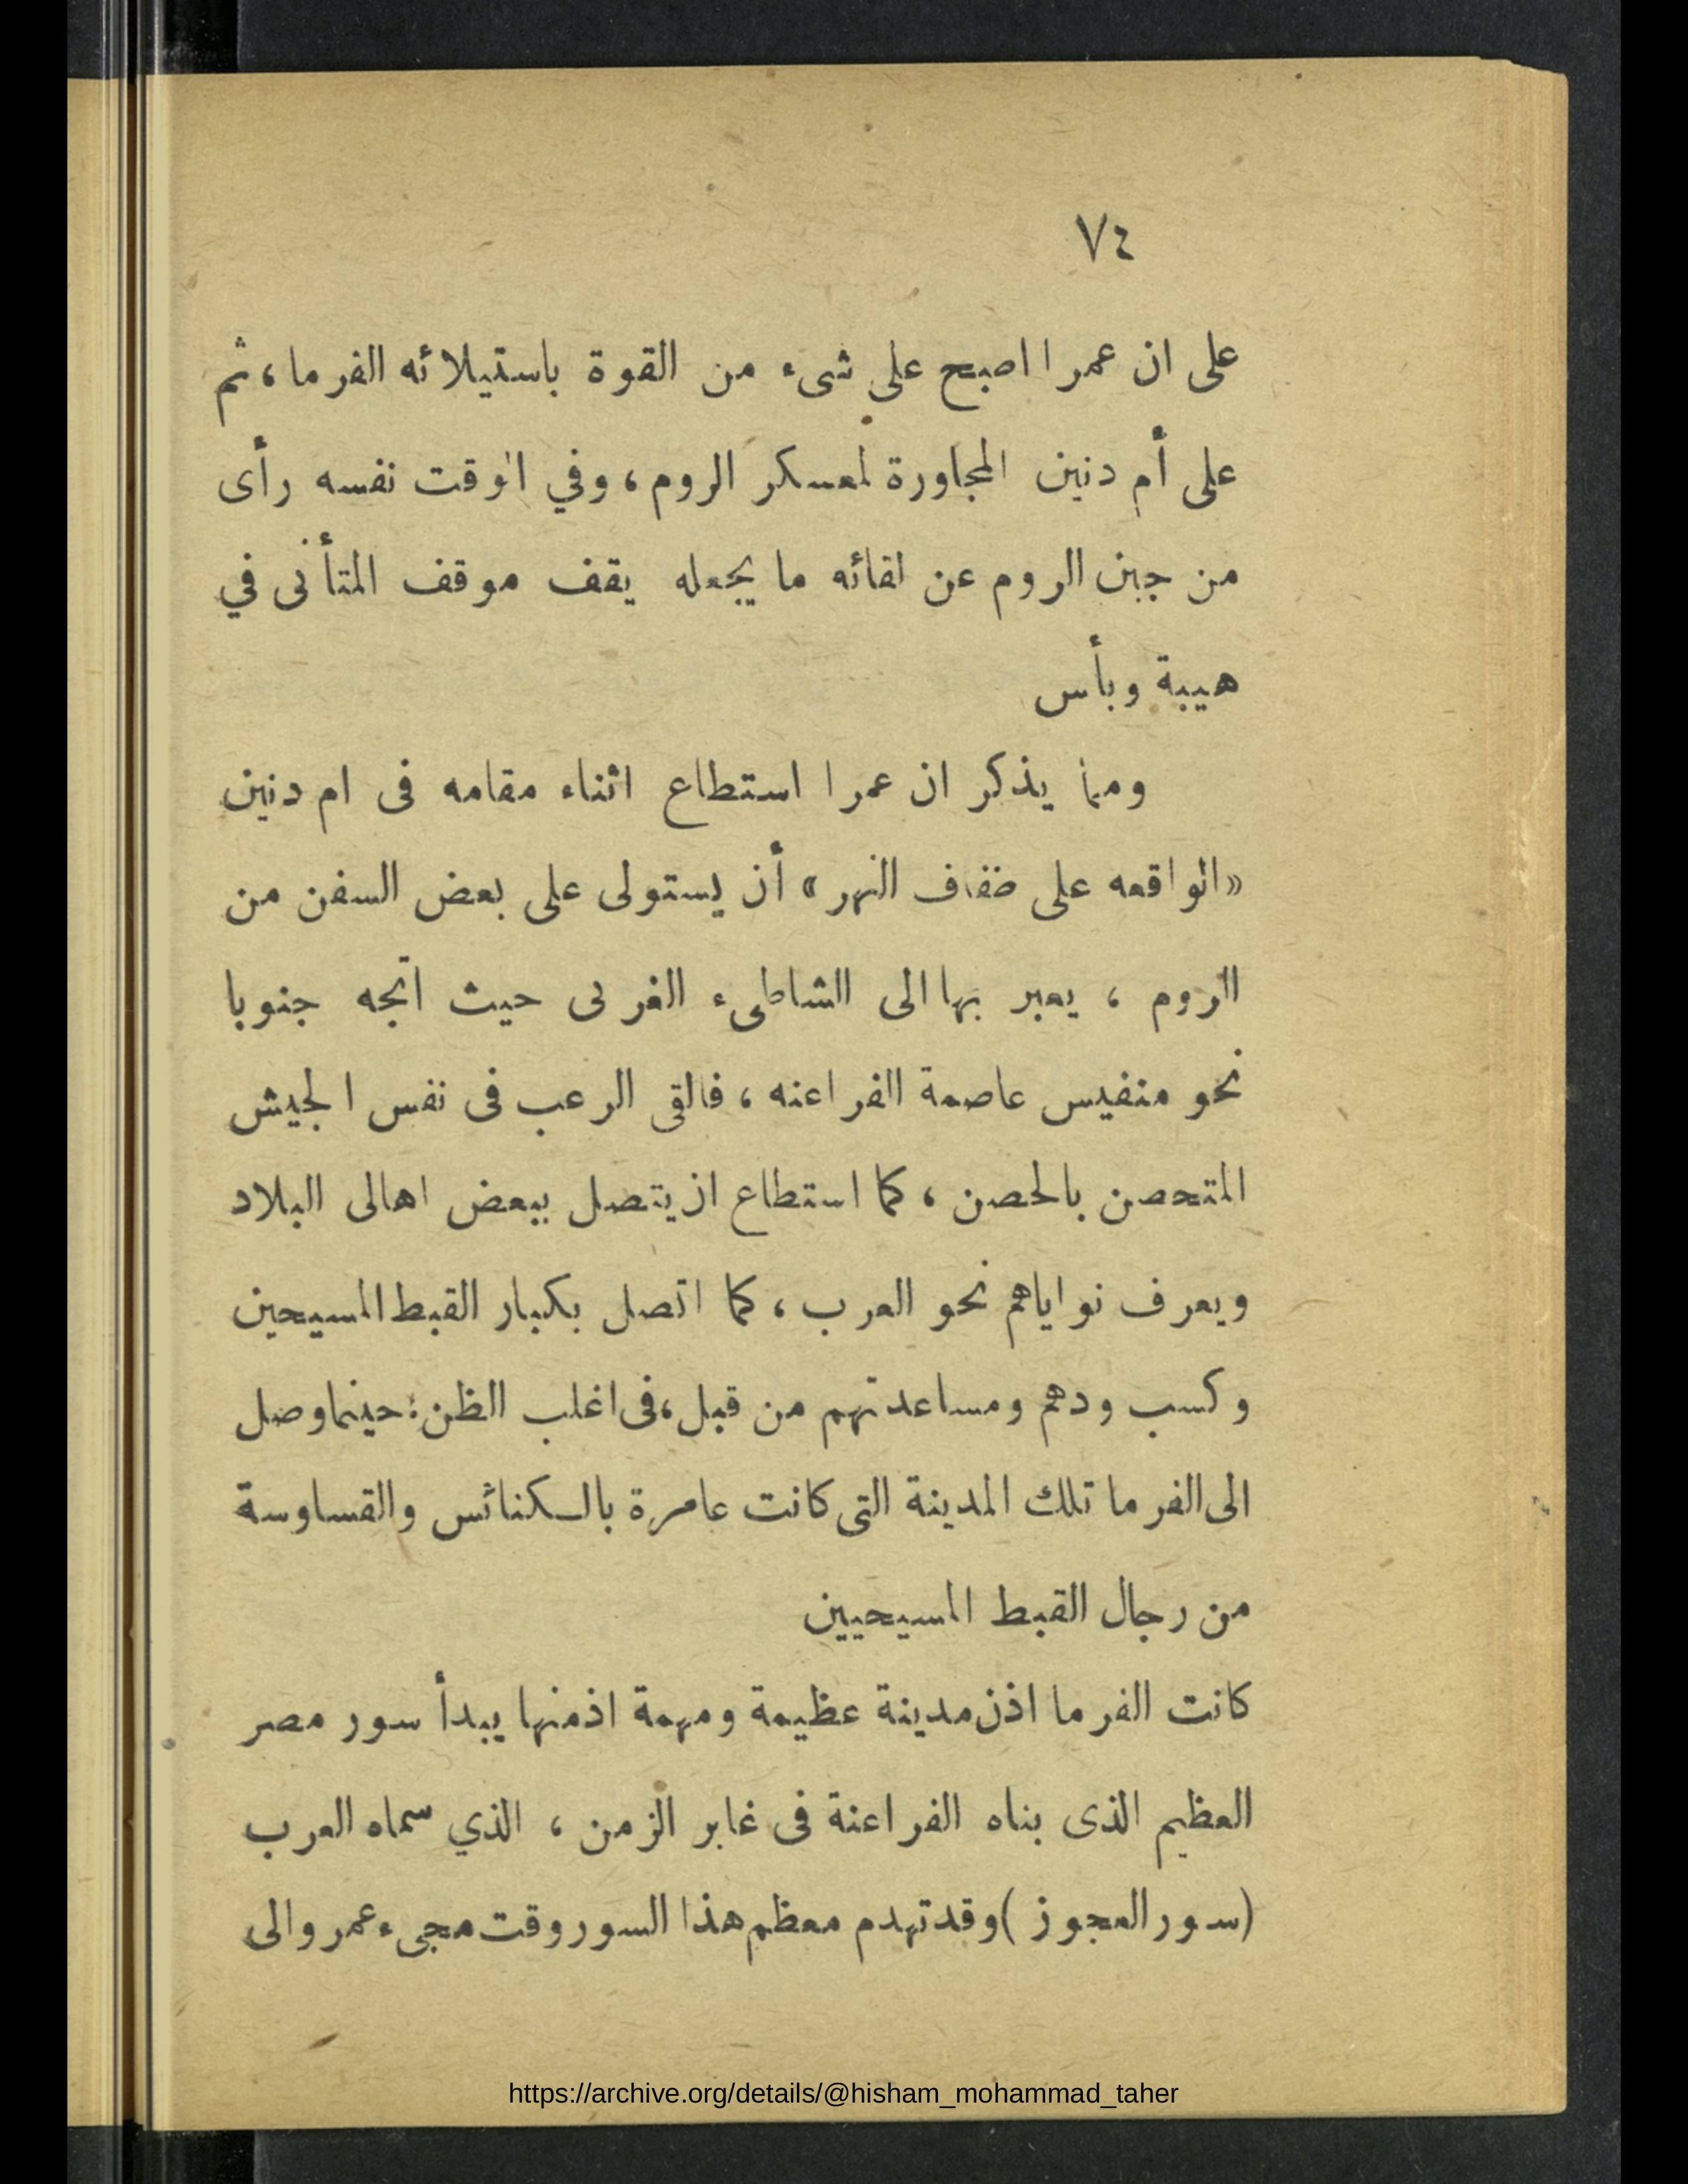 ٧٤
على ان عمرا اصبح على شىء من القوة باستيلائه الفرما، ثم
على أم دنين المجاورة لمعسكر الروم، وفي الوقت نفسه رأى
من جبن الروم عن لقائه ما يجعله يقف موقف المتأنى في
هيبة وبأس
ومما يذكر ان عمرا استطاع اثناء مقامه فى ام دنين
«الواقعه على ضفاف النهر» أن يستولى على بعض السفن من
الروم ، يعبر بها الى الشاطىء الغربى حيث اتجه جنوبا
نحو منفيس عاصمة الفراعنه ، فالقى الرعب فى نفس الجيش
المتحصن بالحصن ، كما استطاع ان يتصل ببعض اهالى البلاد
ويعرف نواياهم نحو العرب ، كما اتصل بكبار القبط المسيحين
وكسب ودهم ومساعدتهم من قبل، فى اغلب الظن: حينما وصل
الى الفرما تلك المدينة التى كانت عامرة بالكنائس والقساوسة
من رجال القبط المسيحيين
كانت الفرما اذن مدينة عظيمة ومهمة اذ منها يبدأ سور مصر
العظيم الذى بناه الفراعنة فى غابر الزمن ، الذي سماه العرب
(سور العجوز) وقد تهدم معظم هذا السور وقت مجىء عمر والى
https://archive.org/details/@hisham_mohammad_taher